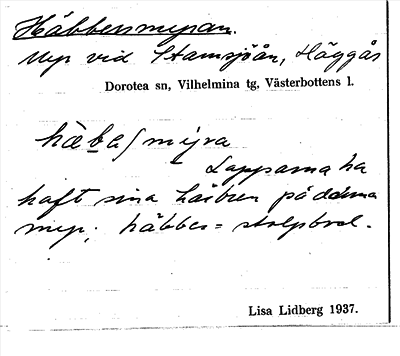 Häbbersmyran.
Myr vid Stamsjöån, Häggås
Dorotea sn, Vilhelmina tg, Västerbottens l.
häbasmyra
Lapparna ha
haft sina härbren på denna
myr; häbber = stolpbod.
Lisa Lidberg 1937.